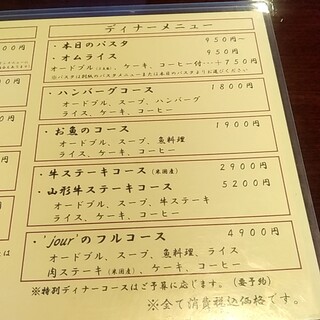 ディナーメニュー
・本日のパスタ 950円~
・オムライス 950円
オードブル、ケーキ、コーヒー付…+750円
・ハンバーグコース 1800円
オードブル、スープ、ハンバーグ
ライス、ケーキ、コーヒー
・お魚のコース 1900円
オードブル、スープ、魚料理
ライス、ケーキ、コーヒー
・牛ステーキコース(米国産) 2900円
・山形牛ステーキコース 5200円
オードブル、スープ、牛ステーキ
ライス、ケーキ、コーヒー
・'jour'のフルコース 4900円
オードブル、スープ、魚料理、ライス
肉ステーキ(米国産)、ケーキ、コーヒー
※特別ディナーコースはご予算に応じます。(要予約)
※全て消費税込価格です。